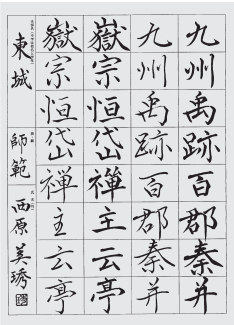 九州禹跡百郡秦并
九州禹跡百郡秦并
嶽宗恒岱禪主云亭
嶽宗恒岱禪主云亭
東城 師範 西原美琇